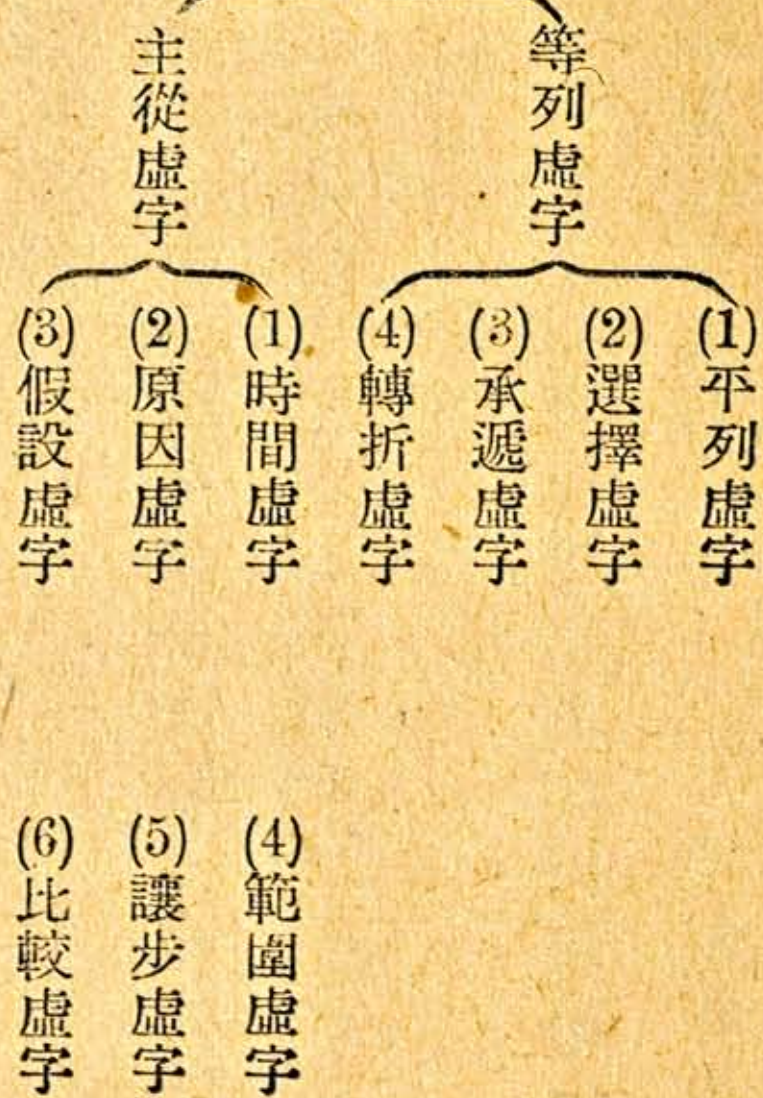 等列虛字
(1)平列虛字
(2)選擇虛字
(3)承遞虛字
(4)轉折虛字
主從虛字
(1)時間虛字
(2)原因虛字
(3)假設虛字
(4)範圍虛字
(5)讓步虛字
(6)比較虛字